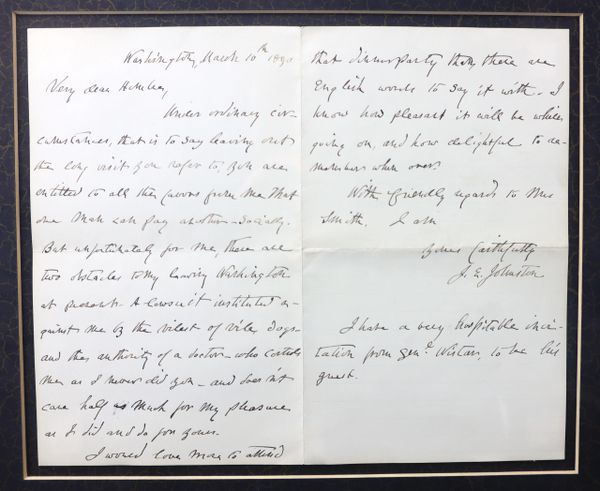 Washington, March 10th 1890
Very dear
Under ordinary cir-
cumstances, that is to say leaving out
the long visit you refer to, you are
entitled to all the favors from me that
one man can pay another – socially.
But unfortunately for me, there are
two obstacles to my leaving Washington
at present – A lawsuit instituted a-
gainst me by the vilest of viler dogs –
and the authority of a doctor – who controls
me as I never did you – and does'nt
care half as much for my pleasure
as I did and do for yours.
I would love more to attend
that dinner party than there are
English words to say it with – I
know how pleasant it will be while
going on, and how delightful to re-
member when over.
With friendly regards to Mrs
Smith, I am
Yours faithfully
J. E. Johnston
I have a very hospitable invi-
tation from Genl. Wistar, to be his
guest.